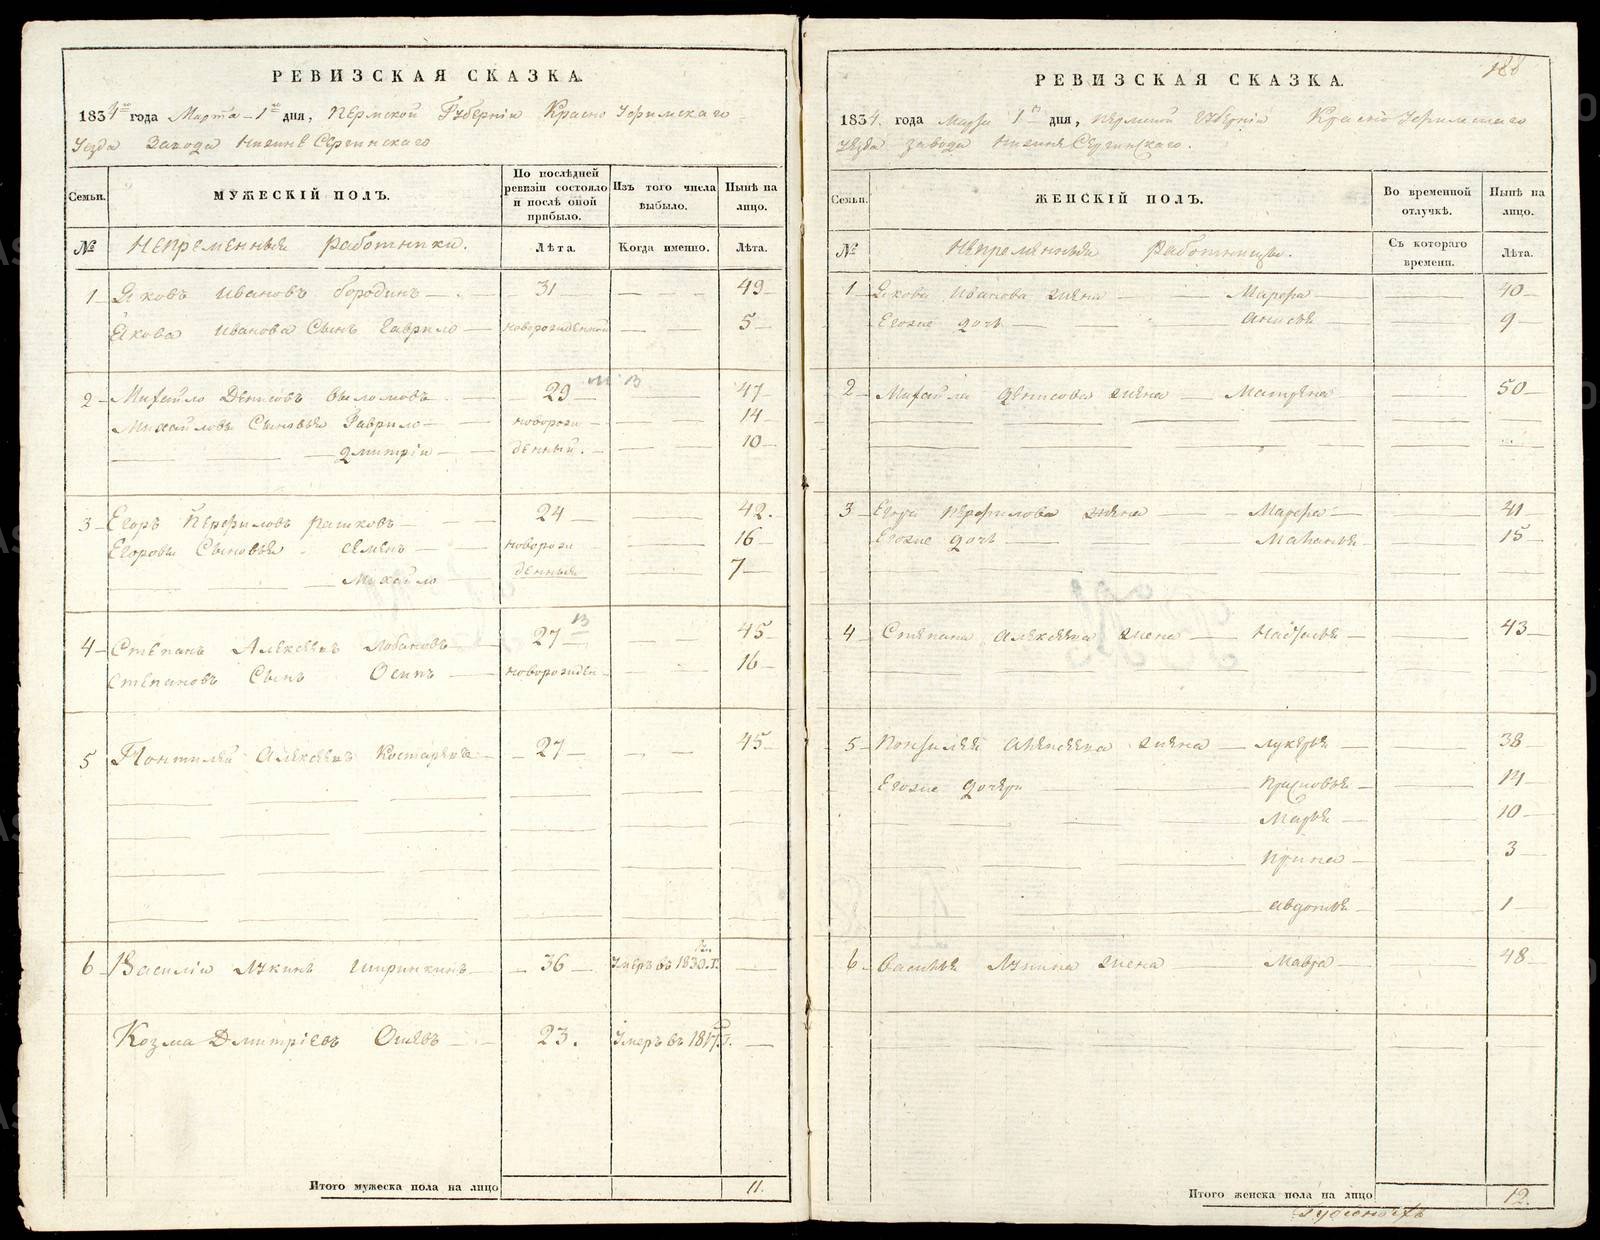 РЕВИЗСКАЯ СКАЗКА.
1834 года Марта 1 дня, Пермской Губернiи Красно Уфимскаго
Уезда Завода Нижне Сергинскаго
Семьи.
МУЖЕСКIЙ ПОЛЪ.
По послѣдней ревизiи состояло и послѣ оной прибыло.
Изъ того числа выбыло.
Нынѣ на лицо.
№ Непременныя работники.
Лѣта. Когда именно. Лѣта.
1 Яковъ Ивановъ Бородинъ 31 49
Якова Иванова Сынъ Гаврило новорожденной 5
2 Михайло Денисовъ 29 47
Михайловы Сыновья Гаврило новорож 14
Дмитрiи денный. 10
3 Егоръ Перфиловъ Рашковъ 24 42.
Егоровы Сыновья Семенъ новорож 16
Михайло денныя 7
4 Степанъ Алексеевъ Лобановъ 27 45
Степановъ Сынъ Осипъ новорожден 16
5 Понтилей Алексеевъ Костаревъ 27 45
6 Василiи Лукинъ Ширинкинъ 36 Умеръ въ 1830.г.
Козма Дмитрiевъ Ошевъ 23. Умеръ въ
Итого мужеска пола на лицо 11.
188
РЕВИЗСКАЯ СКАЗКА.
1834. года Марта 1 дня, Пермской Губернiи Красно Уфимскаго
Уезда завода Нижне Сергинскаго.
Семьи.
ЖЕНСКIЙ ПОЛЪ.
Во временной отлучкѣ.
Нынѣ на лицо.
№ Непременныя Работницы.
Съ котораго времени. Лѣта.
1 Якова Иванова жена Марфа 40
Егоже дочь Анисья 9
2 Михайла Денисова жена Матрена 50
3 Егора Перфилова жена Марфа 41
Егоже дочь Маланья 15
4 Степана Алексеева жена 43
5 Понтилея Алексеева жена Лукерья 38
Егоже дочери Прасковья 14
Марья 10
Ирина 3
Авдотья 1
6 Василья Лукина жена Мавра 48
Итого женска пола на лицо 12.